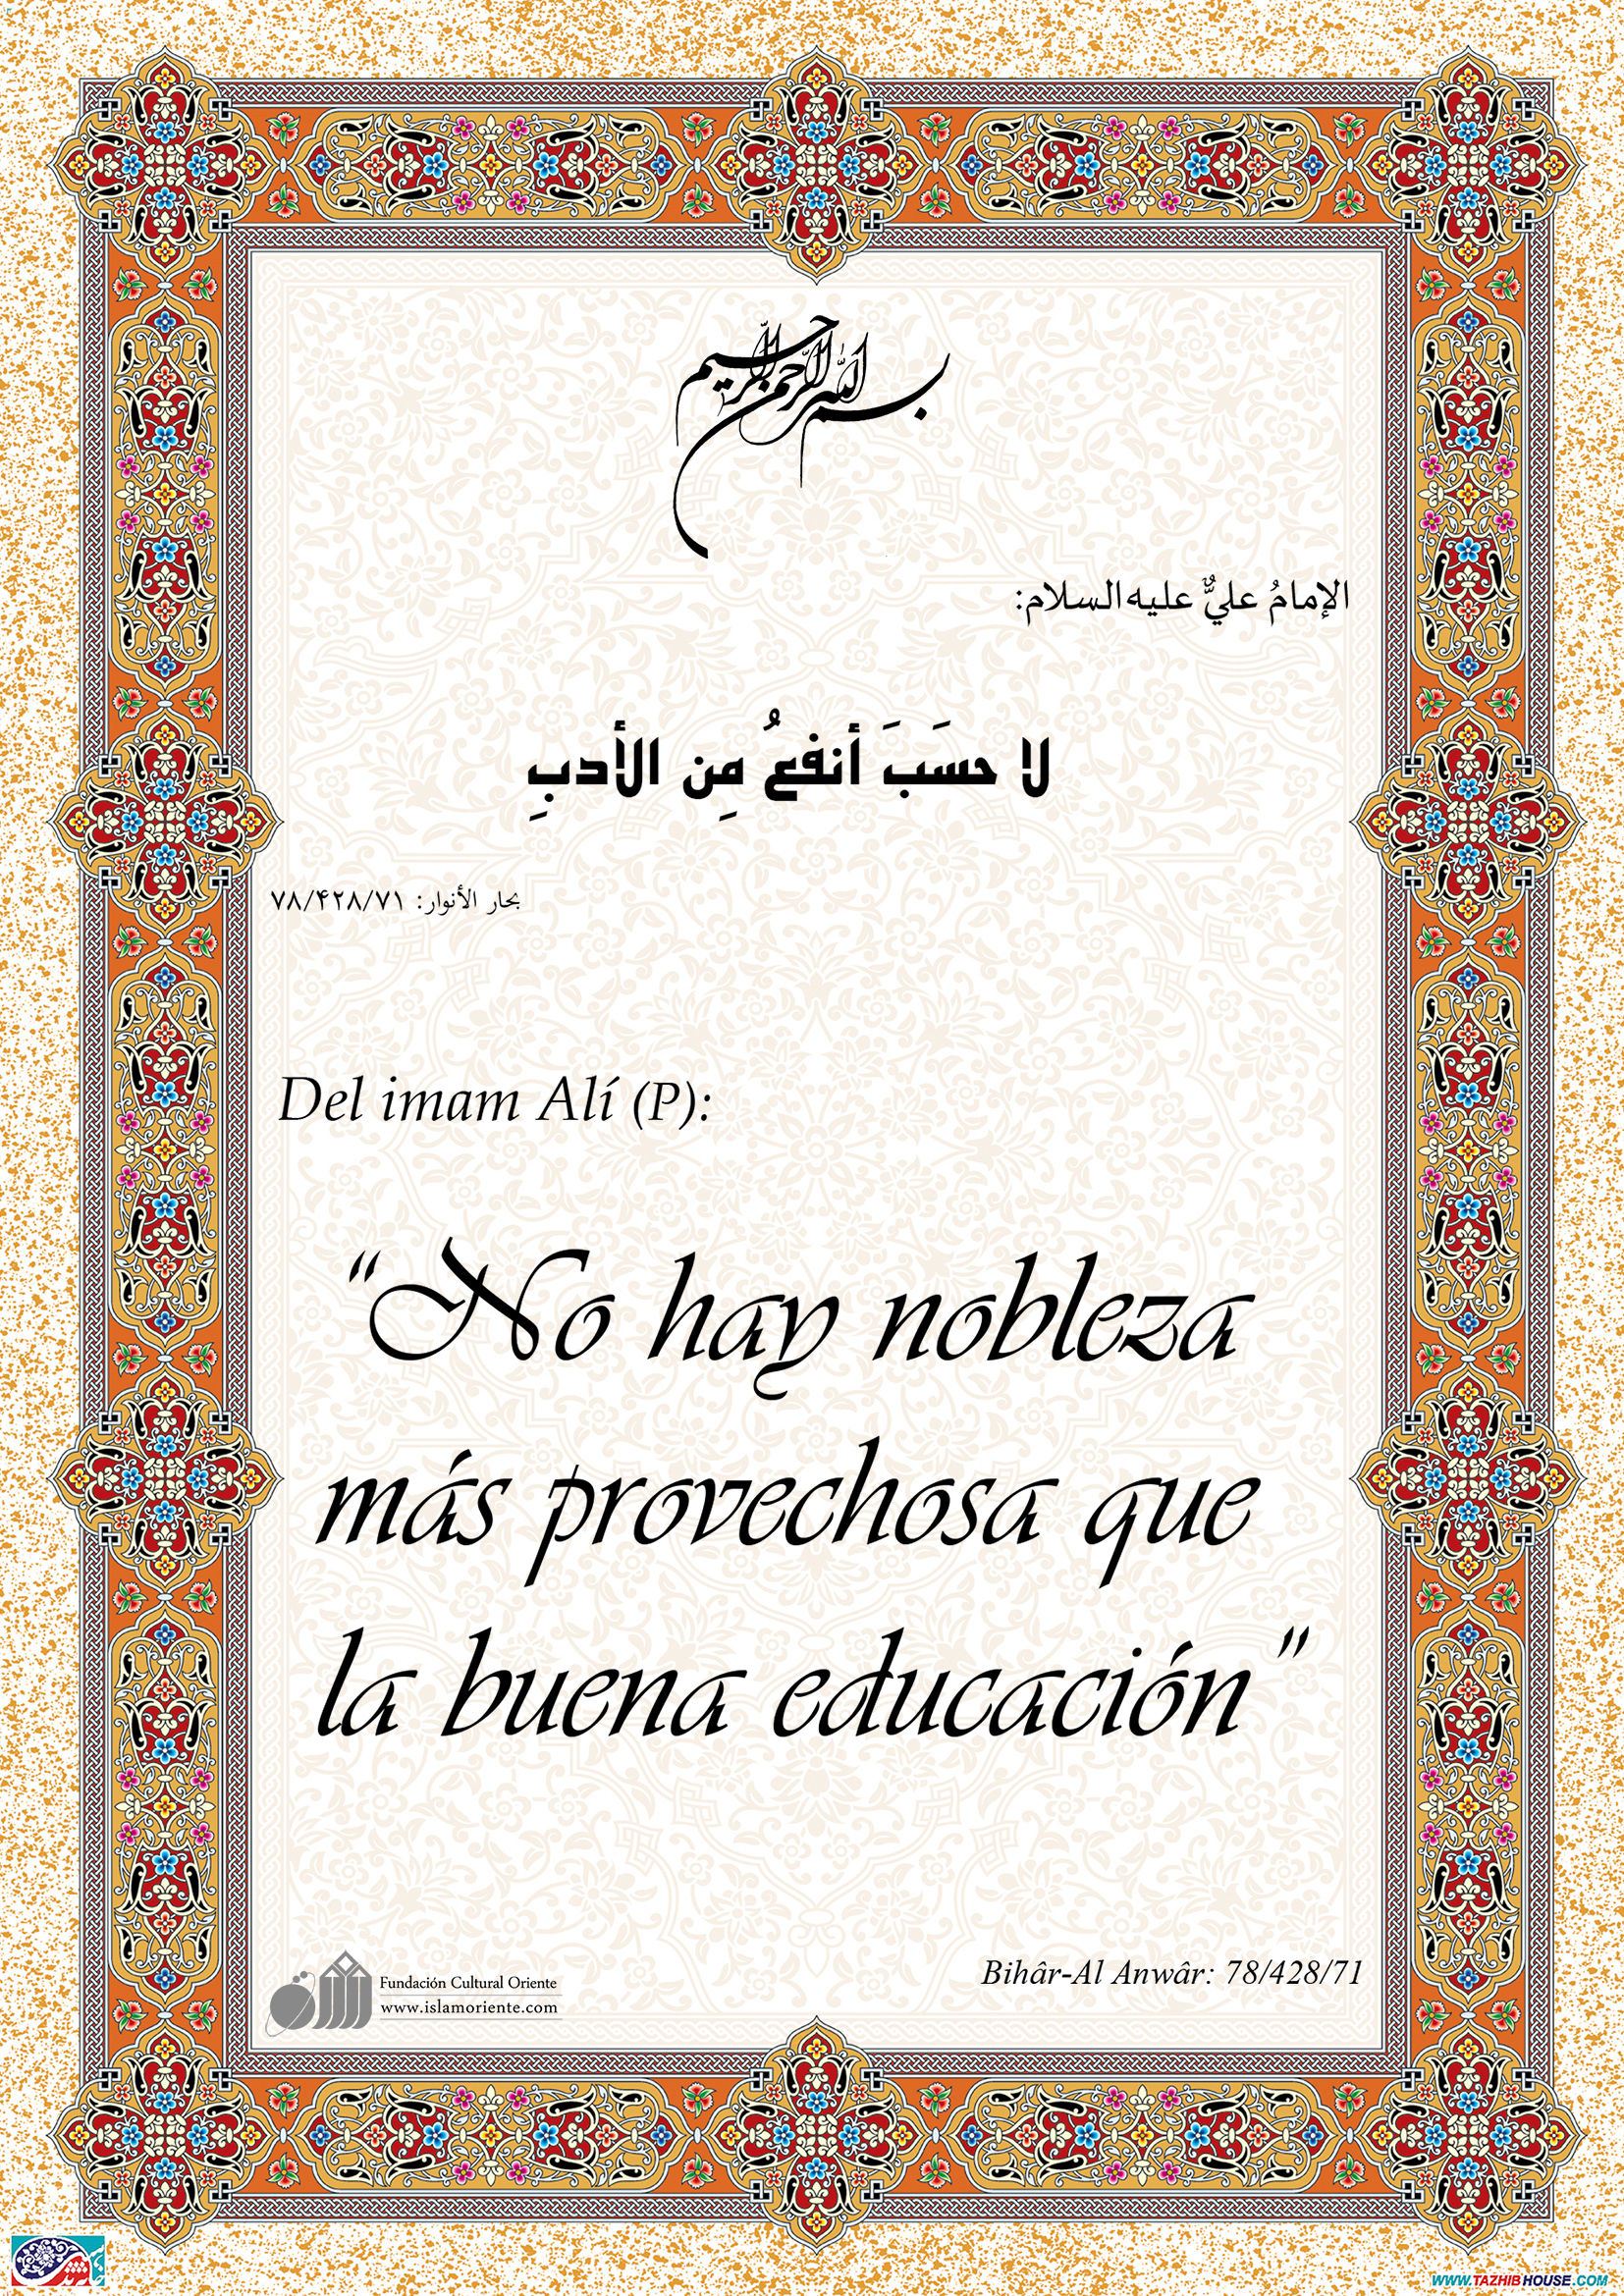 بسم الله الرحمن الرحيم
الإمامُ عليٌّ عليه السلام:
لا حسَبَ أنفعُ مِن الأدبِ
بحار الأنوار: ۷۸/۴۲۸/۷۱
Del imam Alí (P):
“No hay nobleza
más provechosa que
la buena educación”
Bihâr-Al Anwâr: 78/428/71
Fundación Cultural Oriente
www.islamoriente.com
WWW.TAZHIBHOUSE.COM